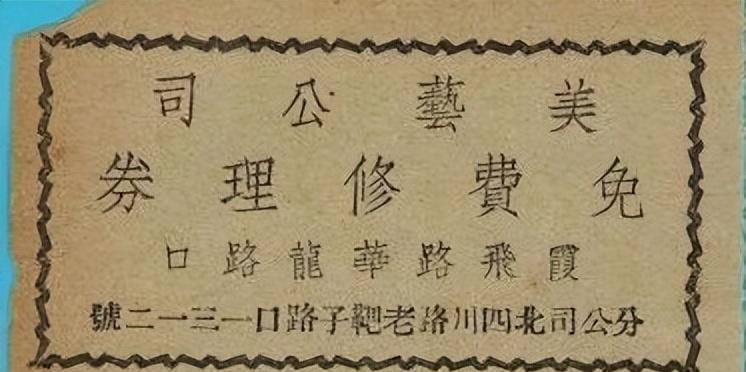 美藝公司
免費修理券
霞飛路華龍路口
分公司北四川路老靶子路口一三一二號